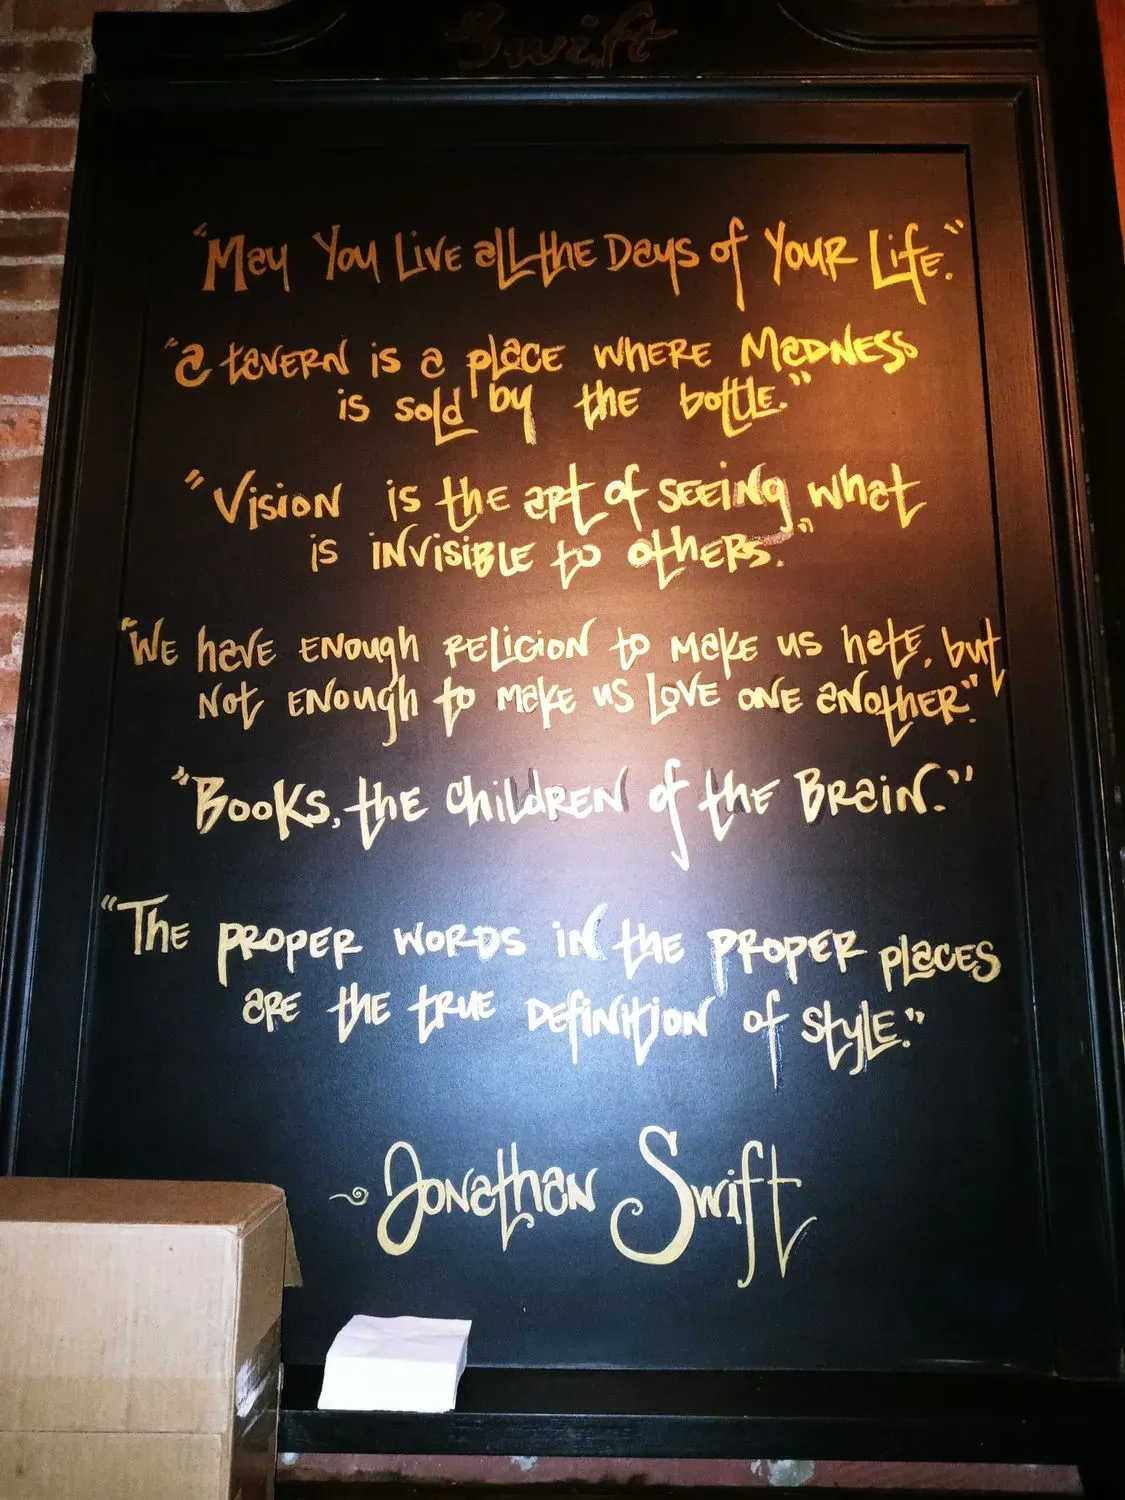 Swift
"May You Live all the Days of Your Life."
"a tavern is a place where Madness
is sold by the bottle."
"Vision is the art of seeing what
is invisible to others."
"We have enough religion to make us hate, but
not enough to make us love one another."
"Books, the children of the Brain."
"The proper words in the proper places
are the true definition of style."
~ Jonathan Swift